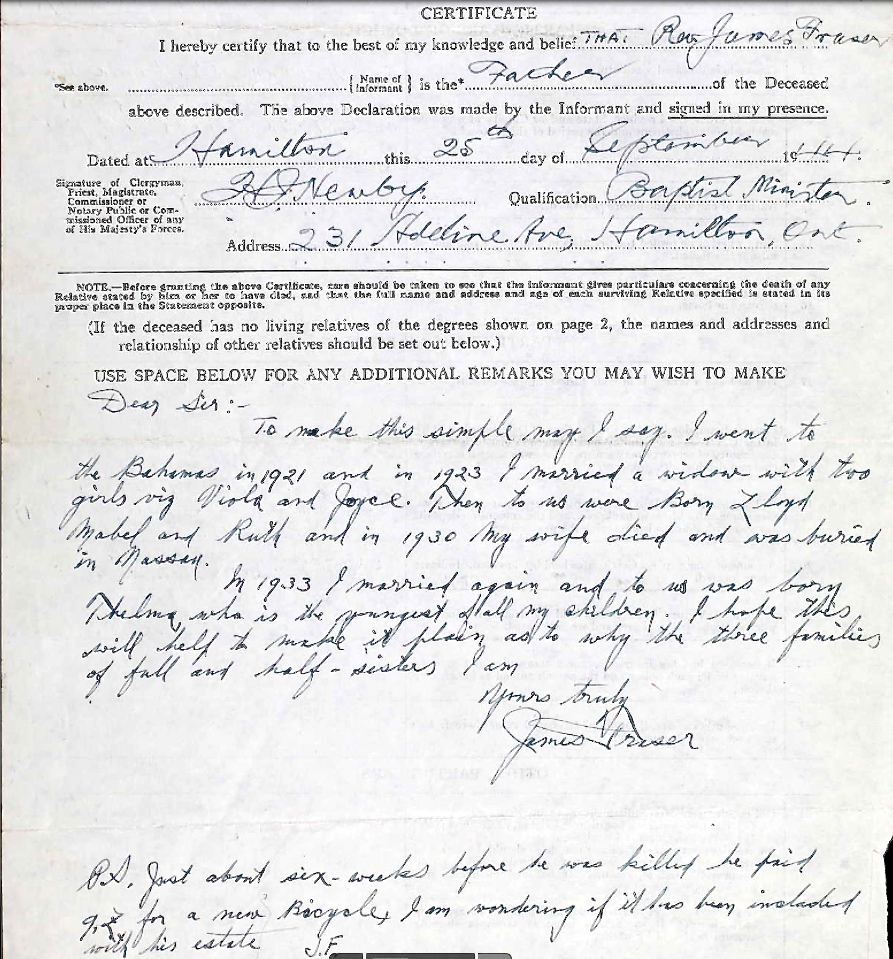 CERTIFICATE
I hereby certify that to the best of my knowledge and belief THAT Rev James Fraser
*See above. { Name of Informant } is the* Father of the Deceased
above described. The above Declaration was made by the Informant and signed in my presence.
Dated at Hamilton this 25th day of September 1944.
Signature of Clergyman, Priest, Magistrate, Commissioner or Notary Public or Commissioned Officer of any of His Majesty's Forces.
Newby. Qualification Baptist Minister.
Address 231 Adeline Ave, Hamilton, Ont.
NOTE.—Before granting the above Certificate, care should be taken to see that the informant gives particulars concerning the death of any
Relative stated by him or her to have died, and that the full name and address and age of each surviving Relative specified is stated in its
proper place in the Statement opposite.
(If the deceased has no living relatives of the degrees shown on page 2, the names and addresses and
relationship of other relatives should be set out below.)
USE SPACE BELOW FOR ANY ADDITIONAL REMARKS YOU MAY WISH TO MAKE
Dear Sir:-
To make this simple may I say. I went to
the Bahamas in 1921 and in 1923 I married a widow with two
girls viz Viola and Joyce. Then to us were Born Lloyd
Mabel and Ruth and in 1930 My wife died and was buried
in Nassau.
In 1933 I married again and to us was born
Thelma, who is the youngest of all my children. I hope this
will help to make it plain as to why the three families
of full and half-sisters I am
Yours truly
James Fraser
P.S. Just about six-weeks before he was killed he paid
for a new Bicycle, I am wondering if it has been included
with his estate J.F